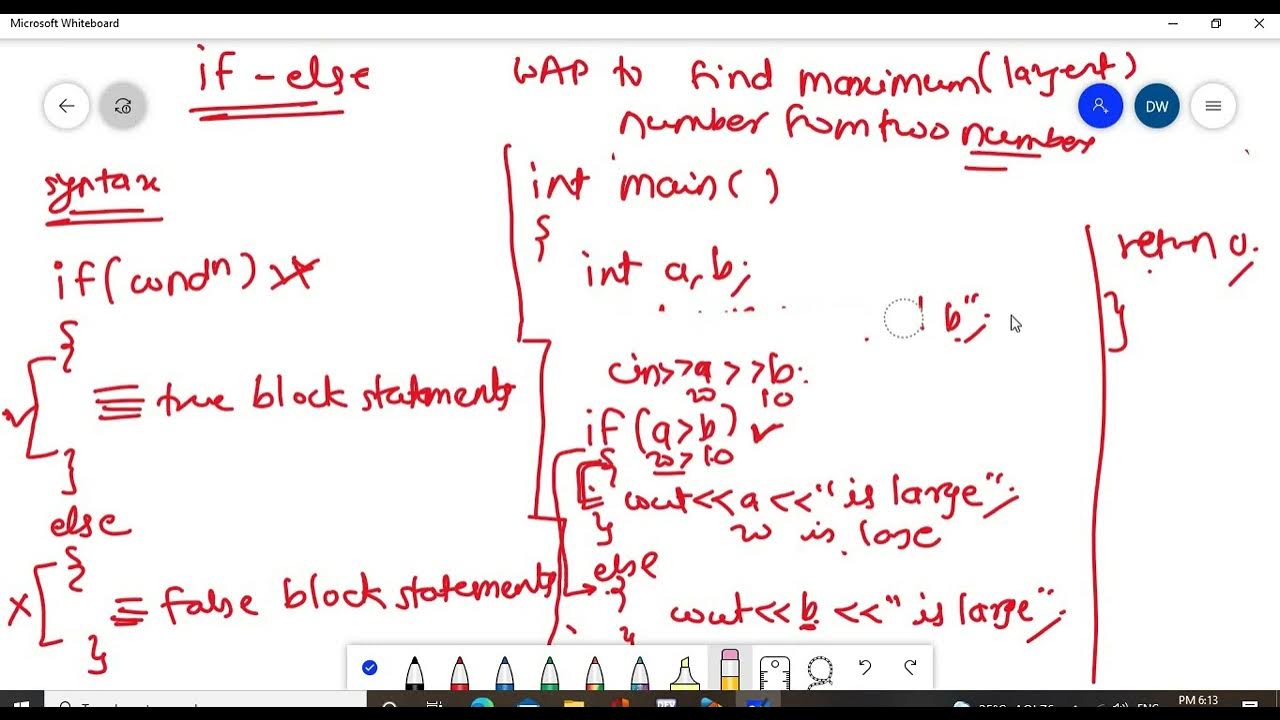 Microsoft Whiteboard
if - else
WAP to find maximum (largest)
number from two number
DW
syntax
if (condⁿ)
{
true block statements
}
else
{
false block statements
}
int main( )
{
int a, b;
b";
cin>>a>>b;
20 10
if (a>b)
20>10
{
cout<<a<<" is large";
20 is large
}
else
{
cout<<b<<" is large";
}
return 0;
}
ENG
PM 6:13